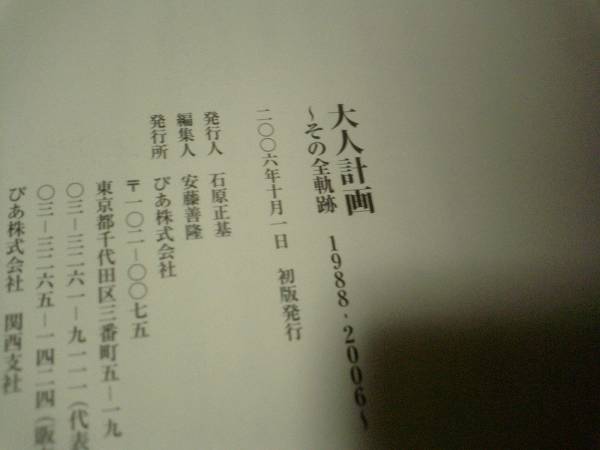 大人計画
～その全軌跡 1988-2006～
二〇〇六年十月一日 初版発行
発行人 石原正基
編集人 安藤善隆
発行所 ぴあ株式会社
〒一〇二―〇〇七五
東京都千代田区三番町五―一九
〇三―三二六一―九一一一(代表
〇三―三二六五―一四二四(販
ぴあ株式会社 関西支社